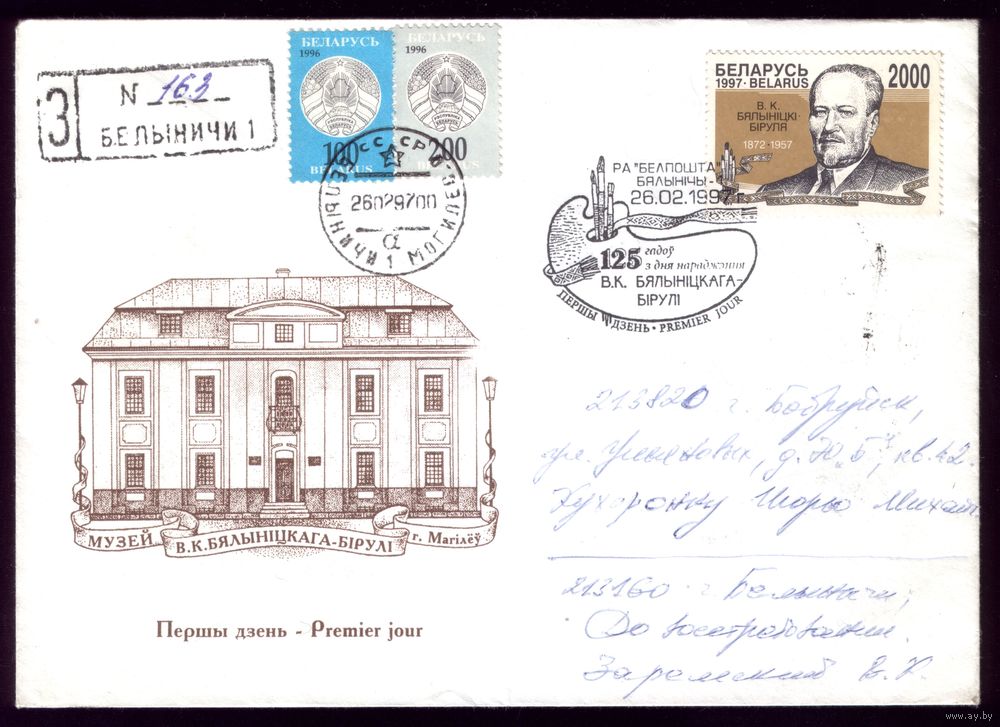 З
N 163
БЕЛЫНИЧИ 1
БЕЛАРУСЬ
1996
100
BELARUS
1996
200
BELARUS
СССР
БЕЛЫНИЧИ 1 МОГИЛЕВ.
2602970
а
БЕЛАРУСЬ
1997·BELARUS
2000
В. К.
БЯЛЫНІЦКІ-
БІРУЛЯ
1872 · 1957
РА "БЕЛПОШТА"
БЯЛЫНІЧЫ-
26.02.1997 г.
125 гадоў
з дня нараджэння
В.К. БЯЛЫНІЦКАГА-
БІРУЛІ
ПЕРШЫ ДЗЕНЬ · PREMIER JOUR
МУЗЕЙ В.К.БЯЛЫНІЦКАГА-БІРУЛІ г. Магілёў
Першы дзень - Premier jour
213820 г. Бобруйск,
кв. 42.
213160 г. Белыничи,
До востребования.
Заремский В. К.
www.ay.by